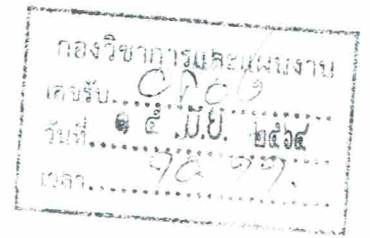 กองวิชาการและแผนงาน
เลขรับ
วันที่ ๑๕ มิ.ย. ๒๕๖๔
เวลา